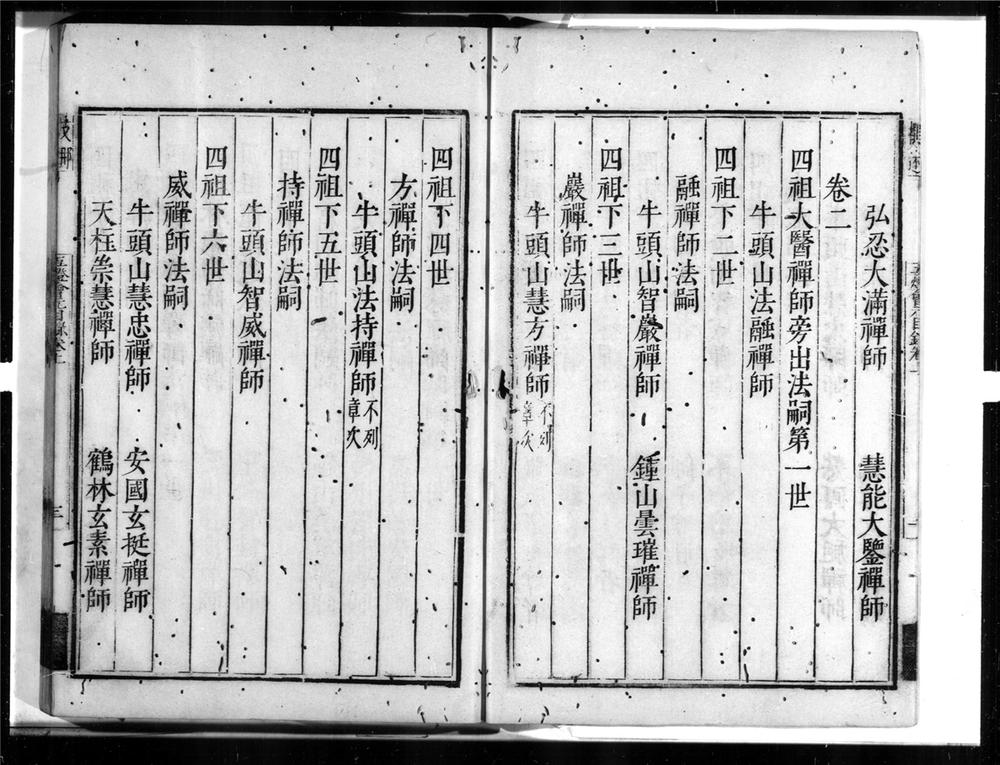 弘忍大滿禪師 慧能大鑒禪師
卷二
四祖大醫禪師旁出法嗣第一世
牛頭山法融禪師
四祖下二世
融禪師法嗣
牛頭山智巖禪師 鍾山曇璀禪師
四祖下三世
巖禪師法嗣
牛頭山慧方禪師 不列章次
四祖下四世
方禪師法嗣
牛頭山法持禪師 不列章次
四祖下五世
持禪師法嗣
牛頭山智威禪師
四祖下六世
威禪師法嗣
牛頭山慧忠禪師 安國玄挺禪師
天柱崇慧禪師 鶴林玄素禪師